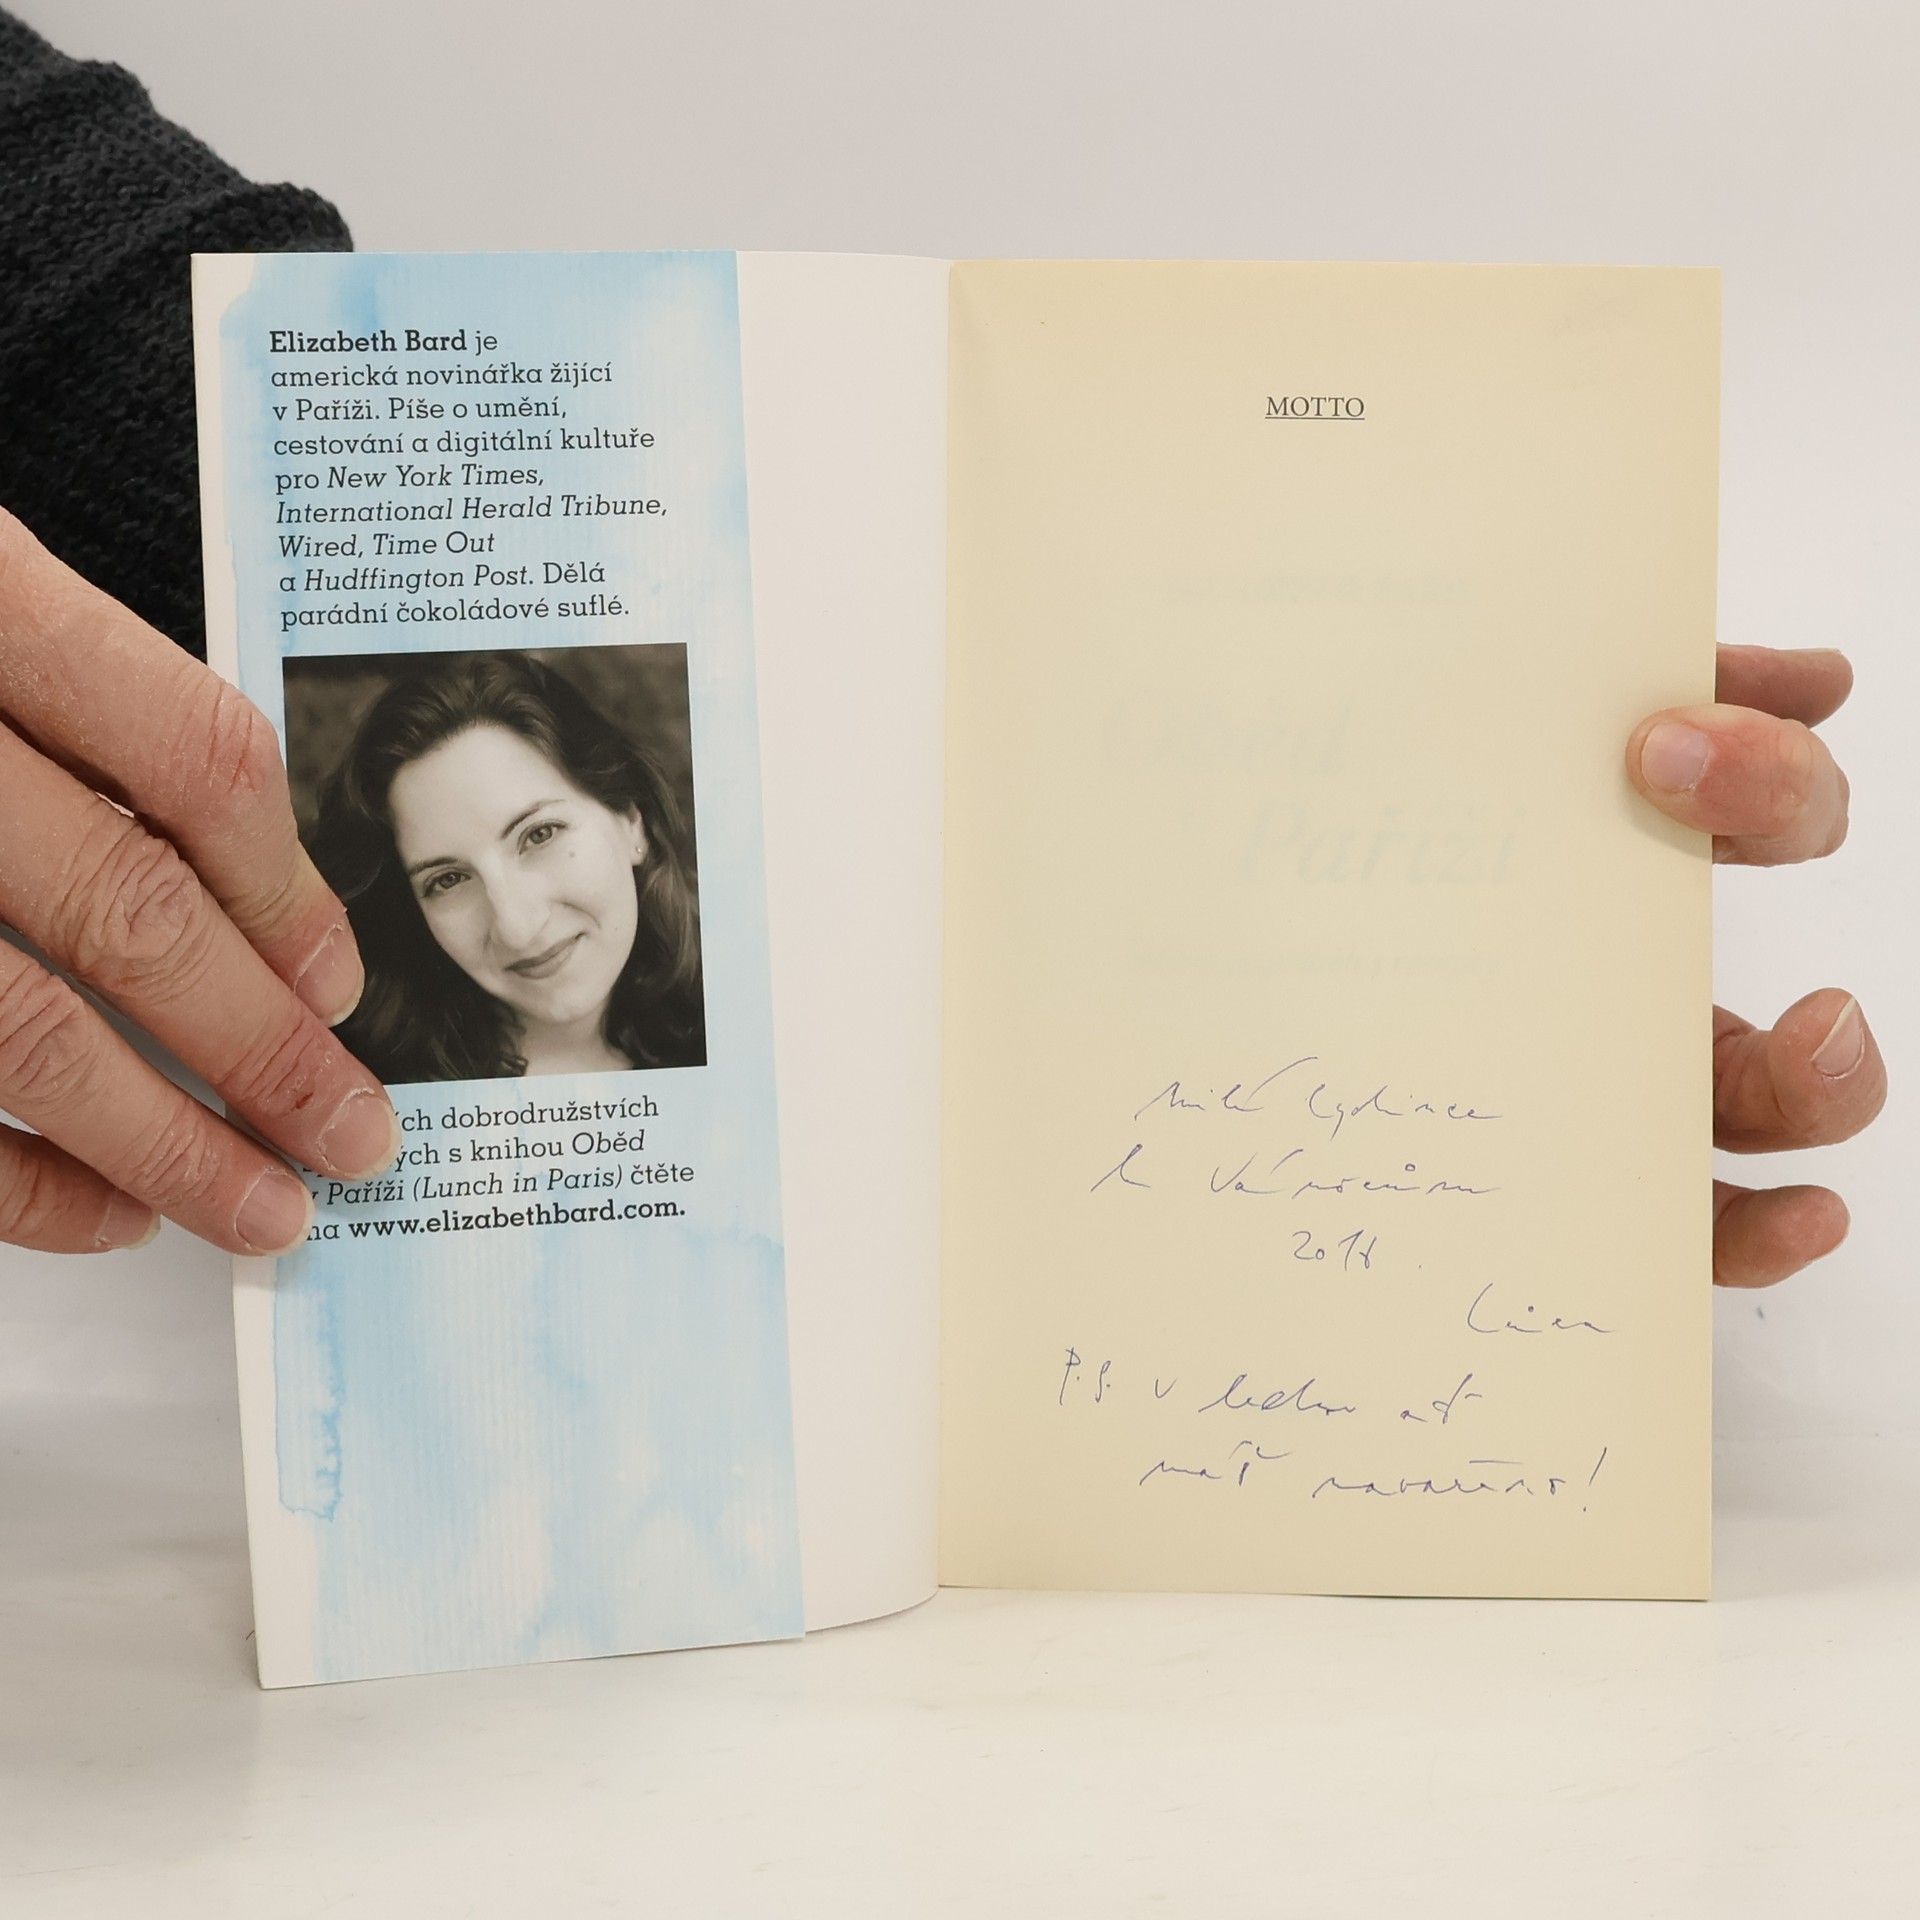 Elizabeth Bard je
americká novinářka žijící
v Paříži. Píše o umění,
cestování a digitální kultuře
pro New York Times,
International Herald Tribune,
Wired, Time Out
a Hudffington Post. Dělá
parádní čokoládové suflé.
ých dobrodružstvích
ých s knihou Oběd
v Paříži (Lunch in Paris) čtěte
na www.elizabethbard.com.
MOTTO
Paříži
Milé Lydince
k Vánocům
2018
P.S. v lednu ať
máš navařeno!